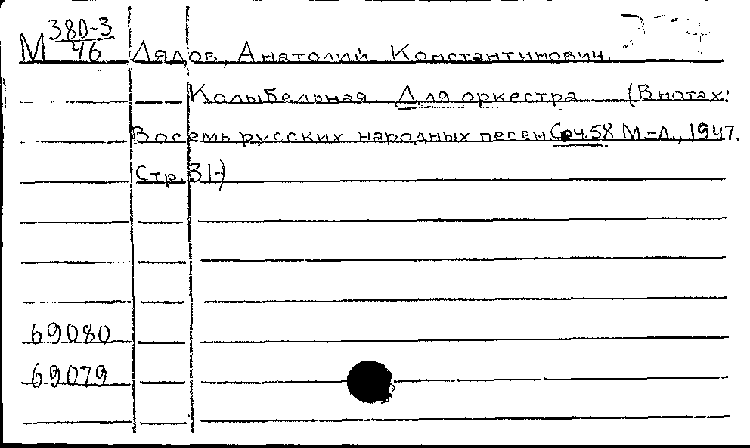 М 380-3
46 Лядов, Анатолий Константинович.
Колыбельная Для оркестра (В нотах:
Восемь русских народных песен Соч.58 М-Л., 1947.
Стр.31-)
69080
69079